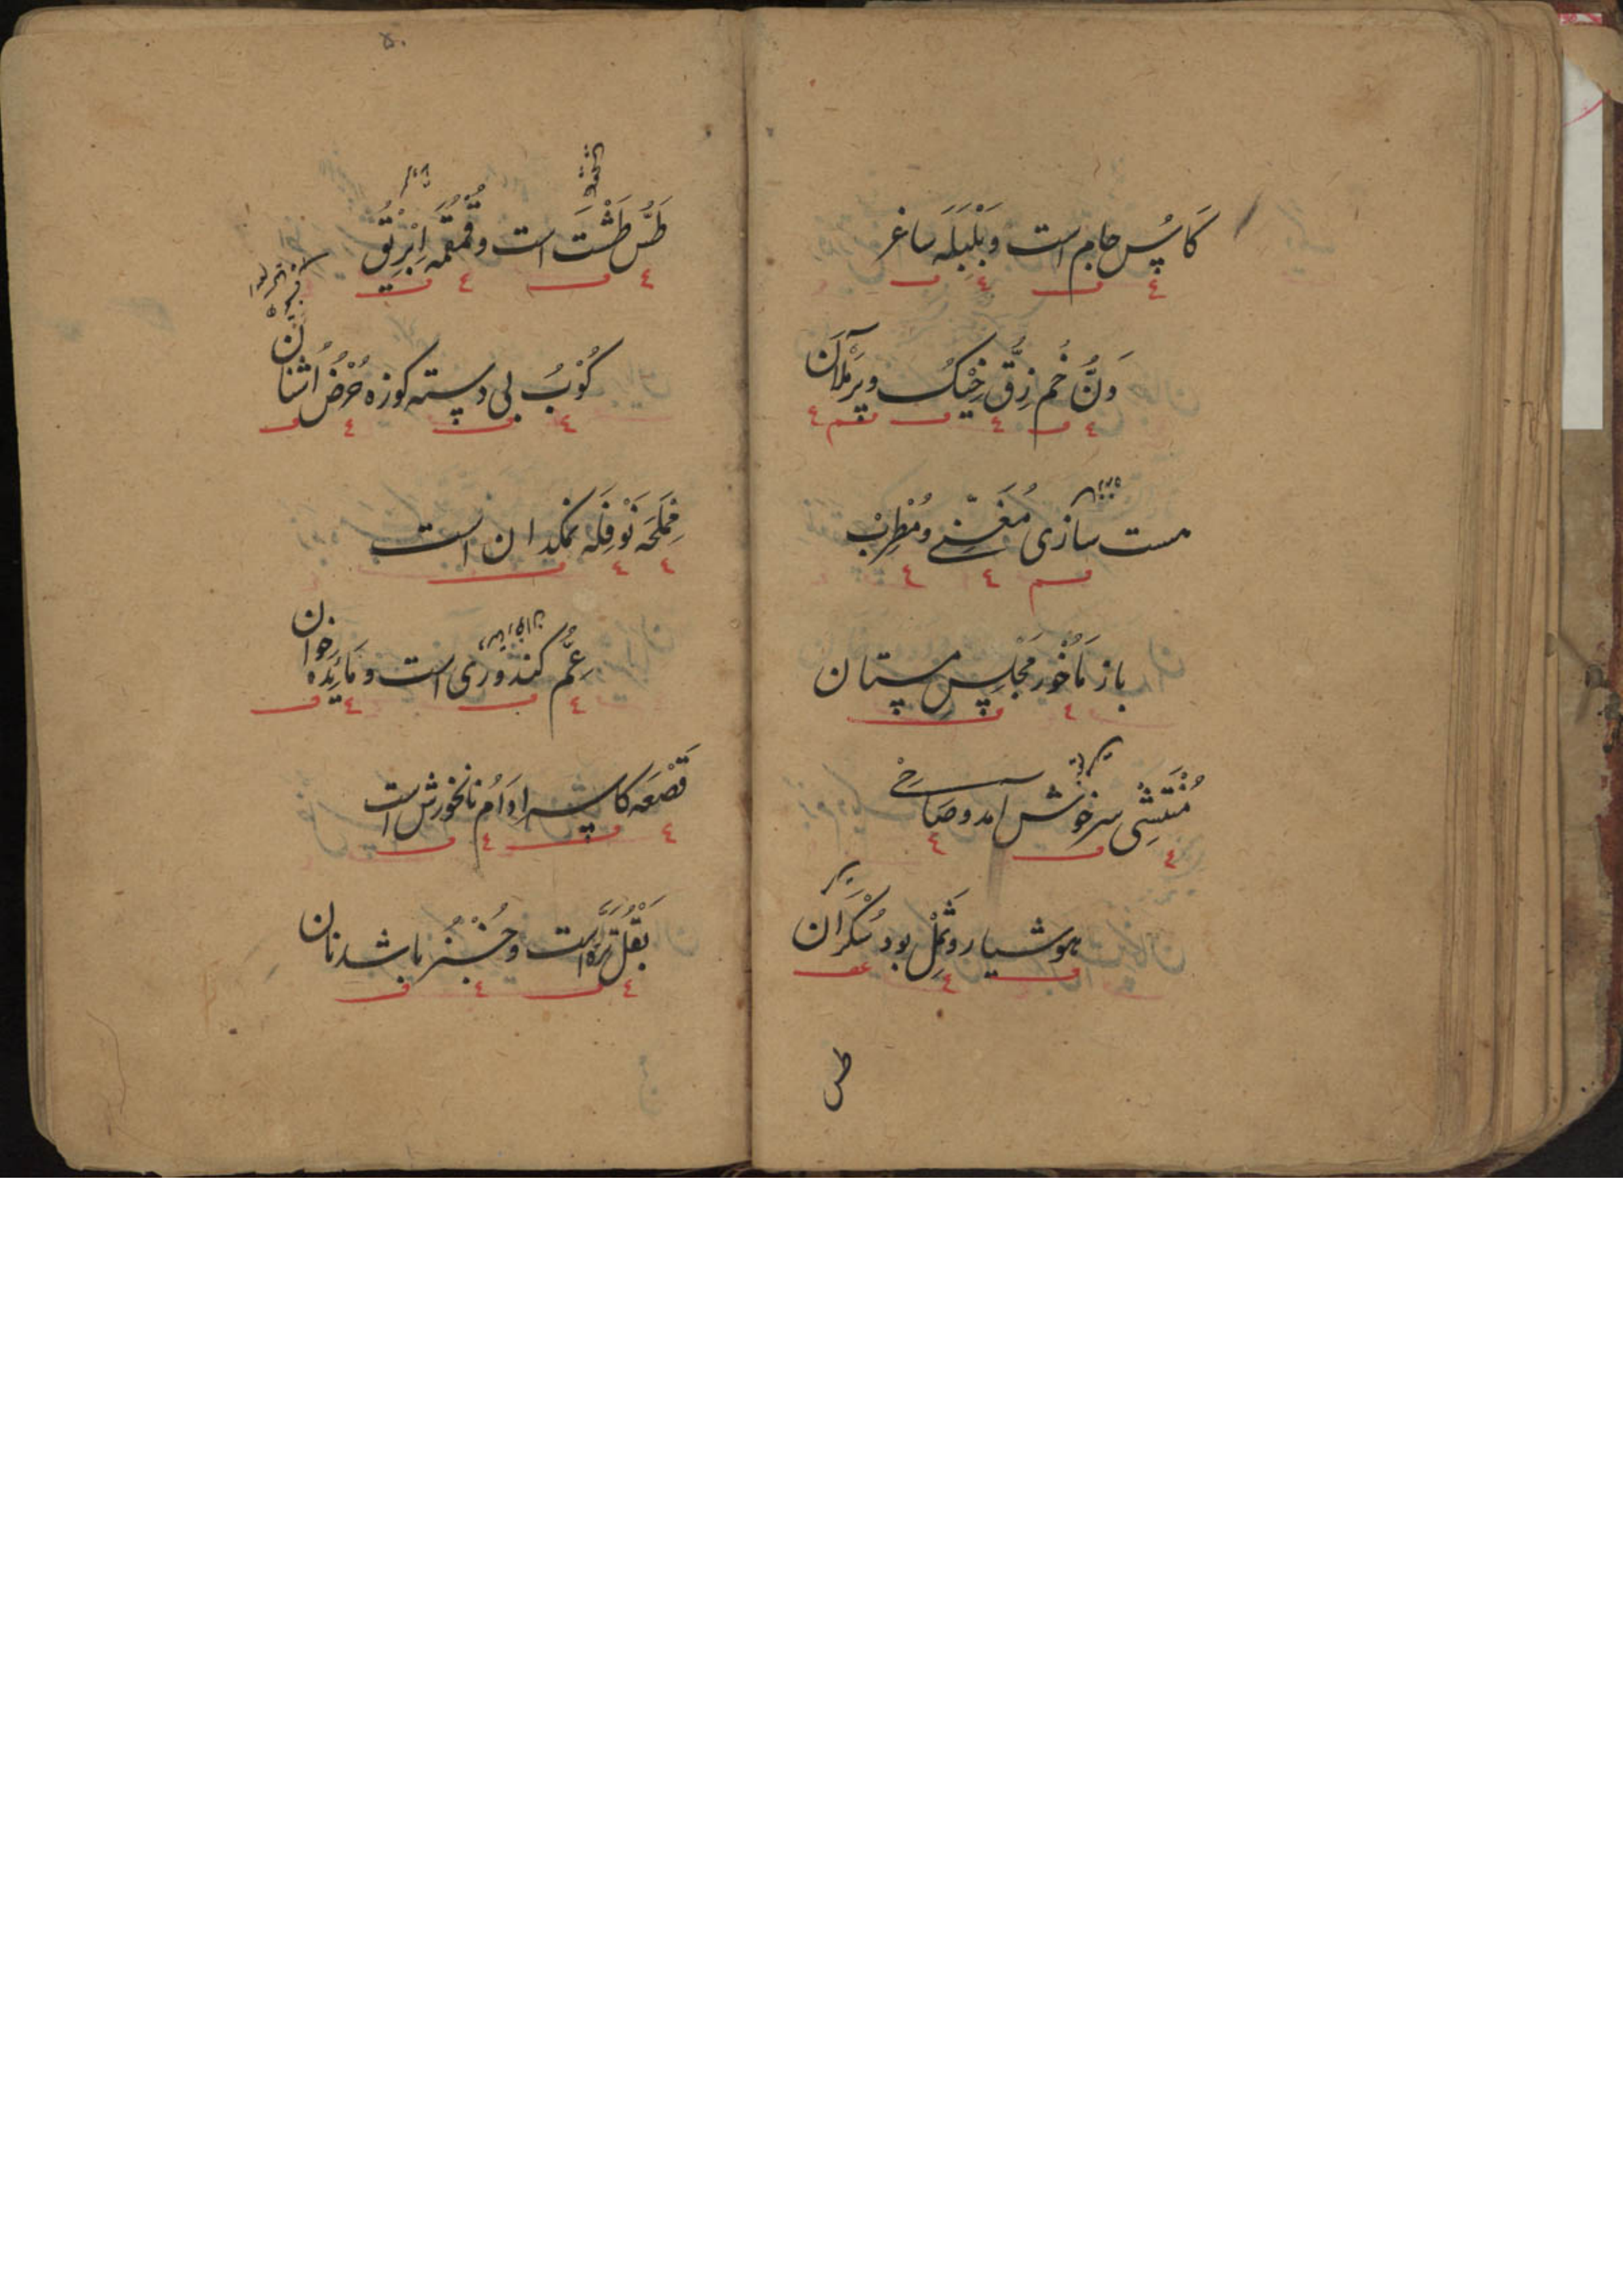 كَاسُ جام است وبَلْبَلَه ساغر
وَنُّ خُم زِقّ خِيْك وپر مَلْآن
مست سازی مُغَنّي ومُطْرِبْ
باز مَاخُور مَجْلِس مستان
مُنْتَشِی سرخوش آمد وصَاحِي
هوشیار وثَمِلْ بود سَكْرَان
طس
طَسُّ طَشْت است وقُمْقُمَه اِبْرِيْقُ
كُوْبُ بی دسته کوزه حُرْضُ اُشْنَان
مِمْلَحَه نَوْفِلَه نمکدان است
عُمّ کندوری است ومَائِدَه خوان
قَصْعَه کاسه اِدَامُ نانخورش است
بَقْل تره است وخُبْز باشد نان